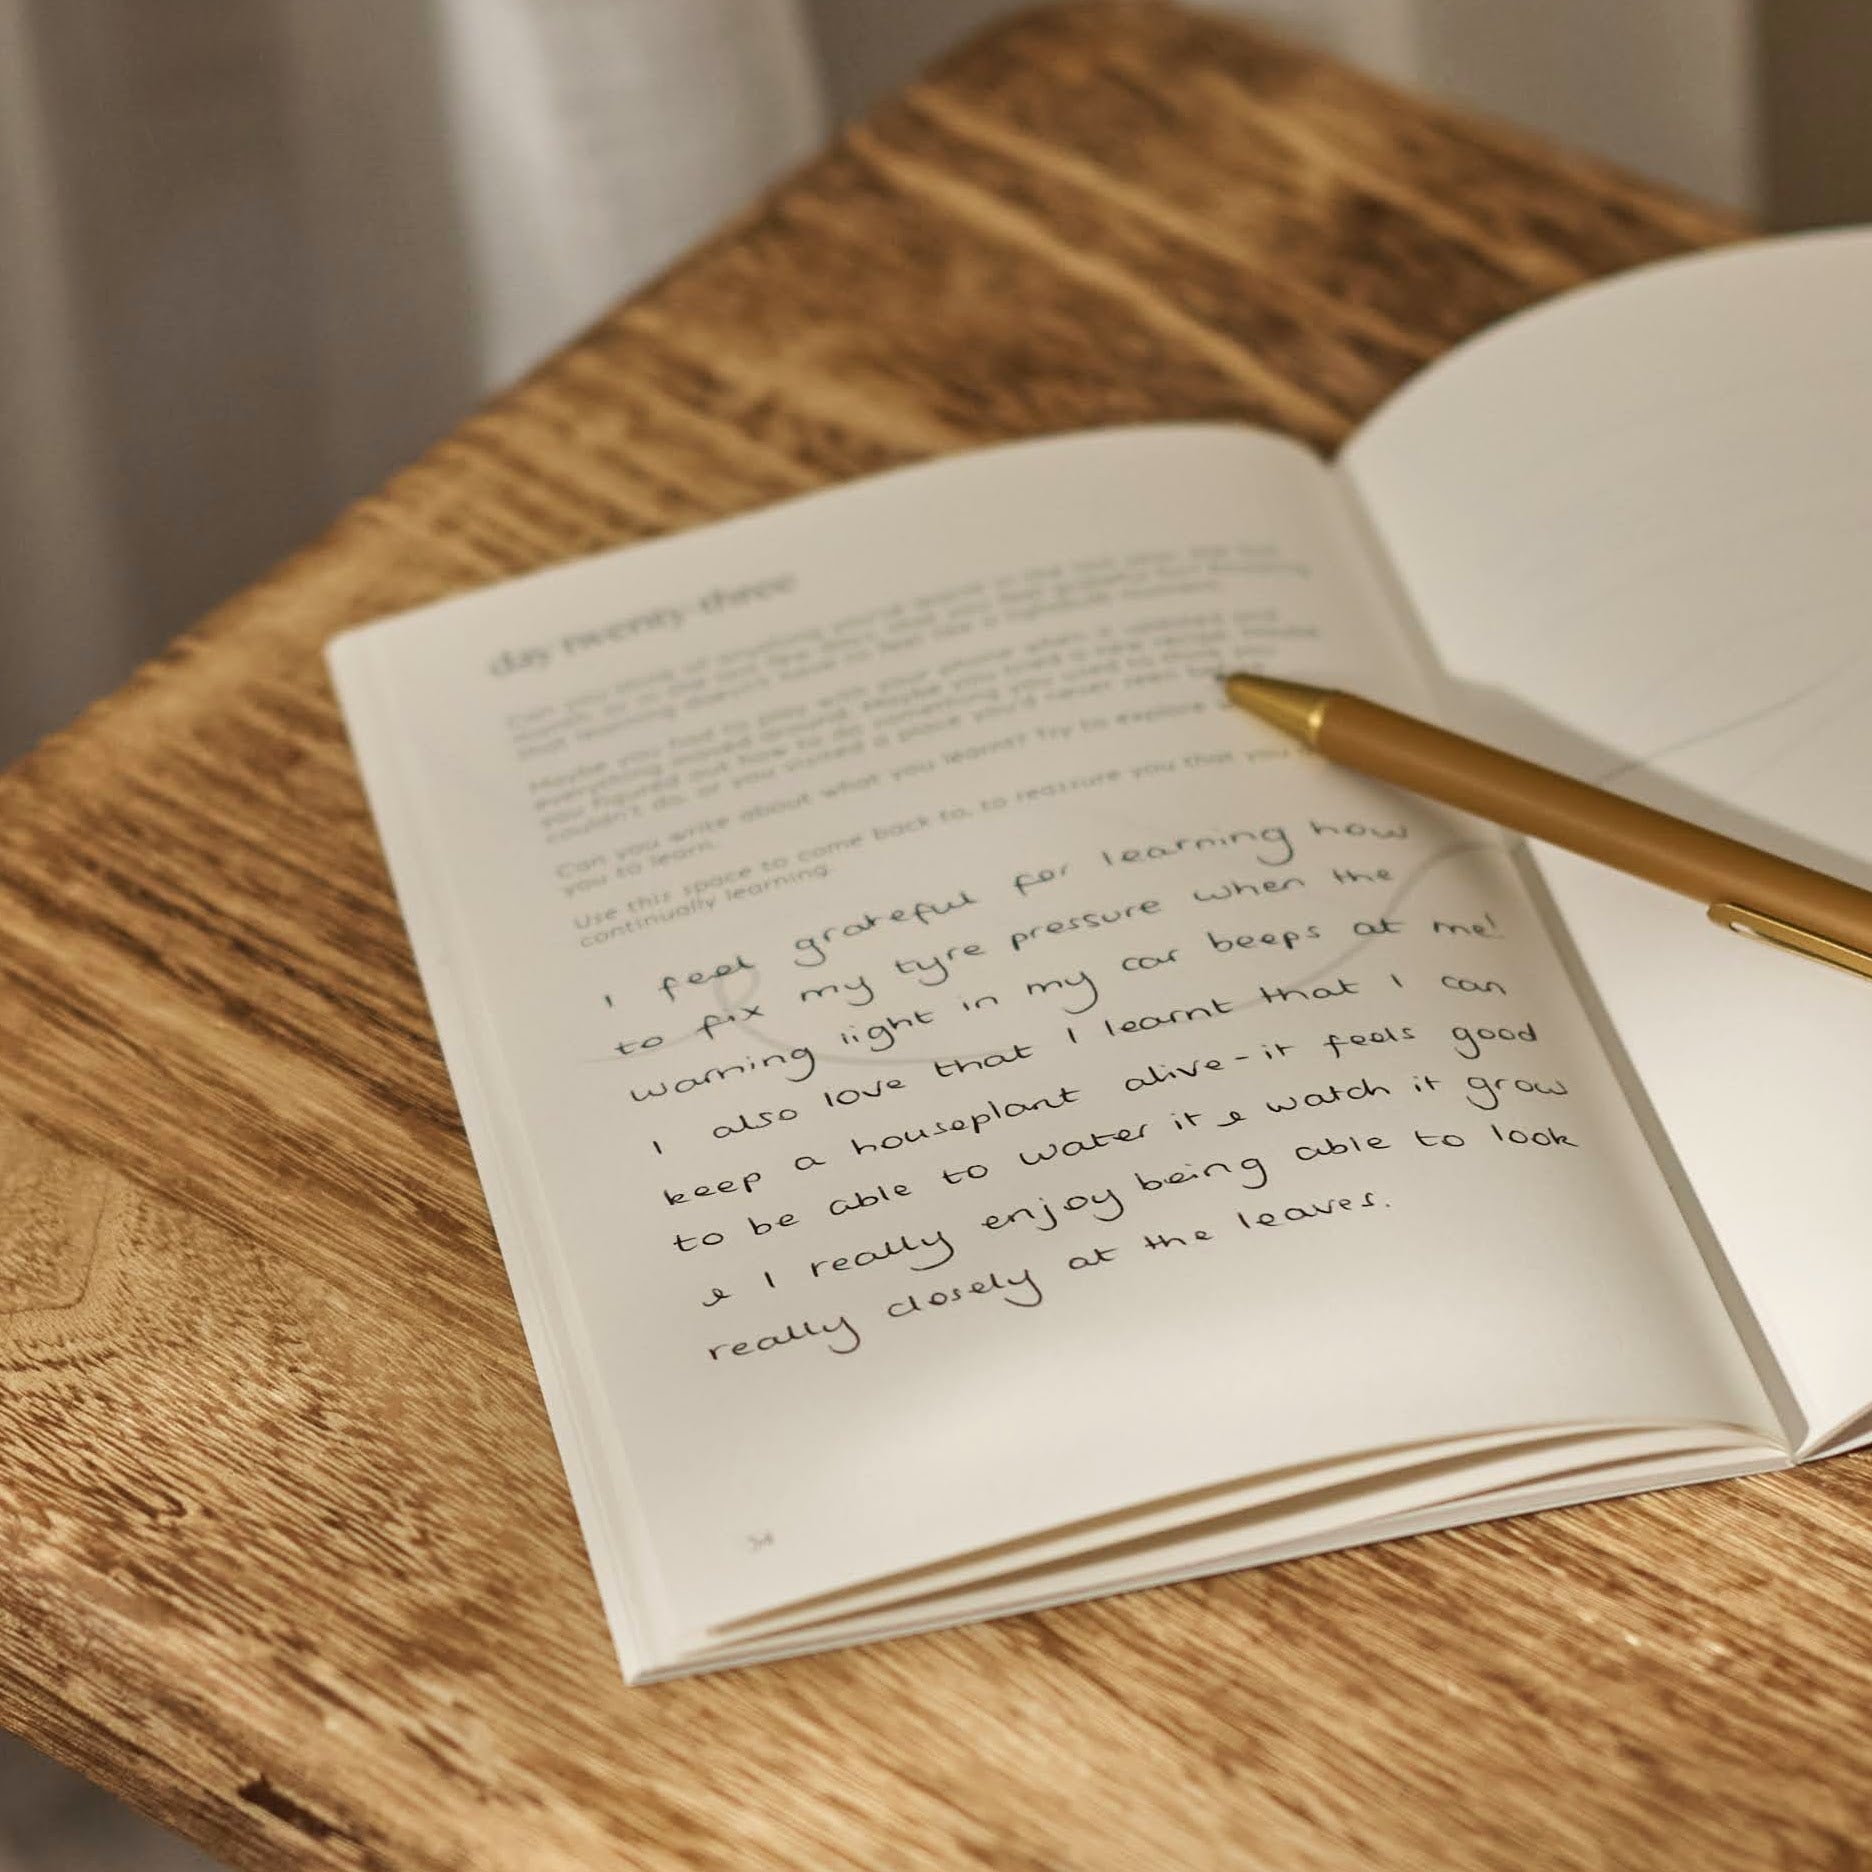 day twenty-three
Can you think of anything you've learnt in the last year, the last
that learning doesn't have to feel like a
Maybe you had to play with your phone when it updated and
everything moved around. Maybe you tried a new recipe. Maybe
you figured out how to do something you used to think you
couldn't do, or you visited a place you'd never seen before.
Can you write about what you learnt? Try to explore
you to learn.
Use this space to come back to, to reassure you that you
continually learning.
I feel grateful for learning how
to fix my tyre pressure when the
warning light in my car beeps at me!
I also love that I learnt that I can
keep a houseplant alive - it feels good
to be able to water it & watch it grow
& I really enjoy being able to look
really closely at the leaves.
34